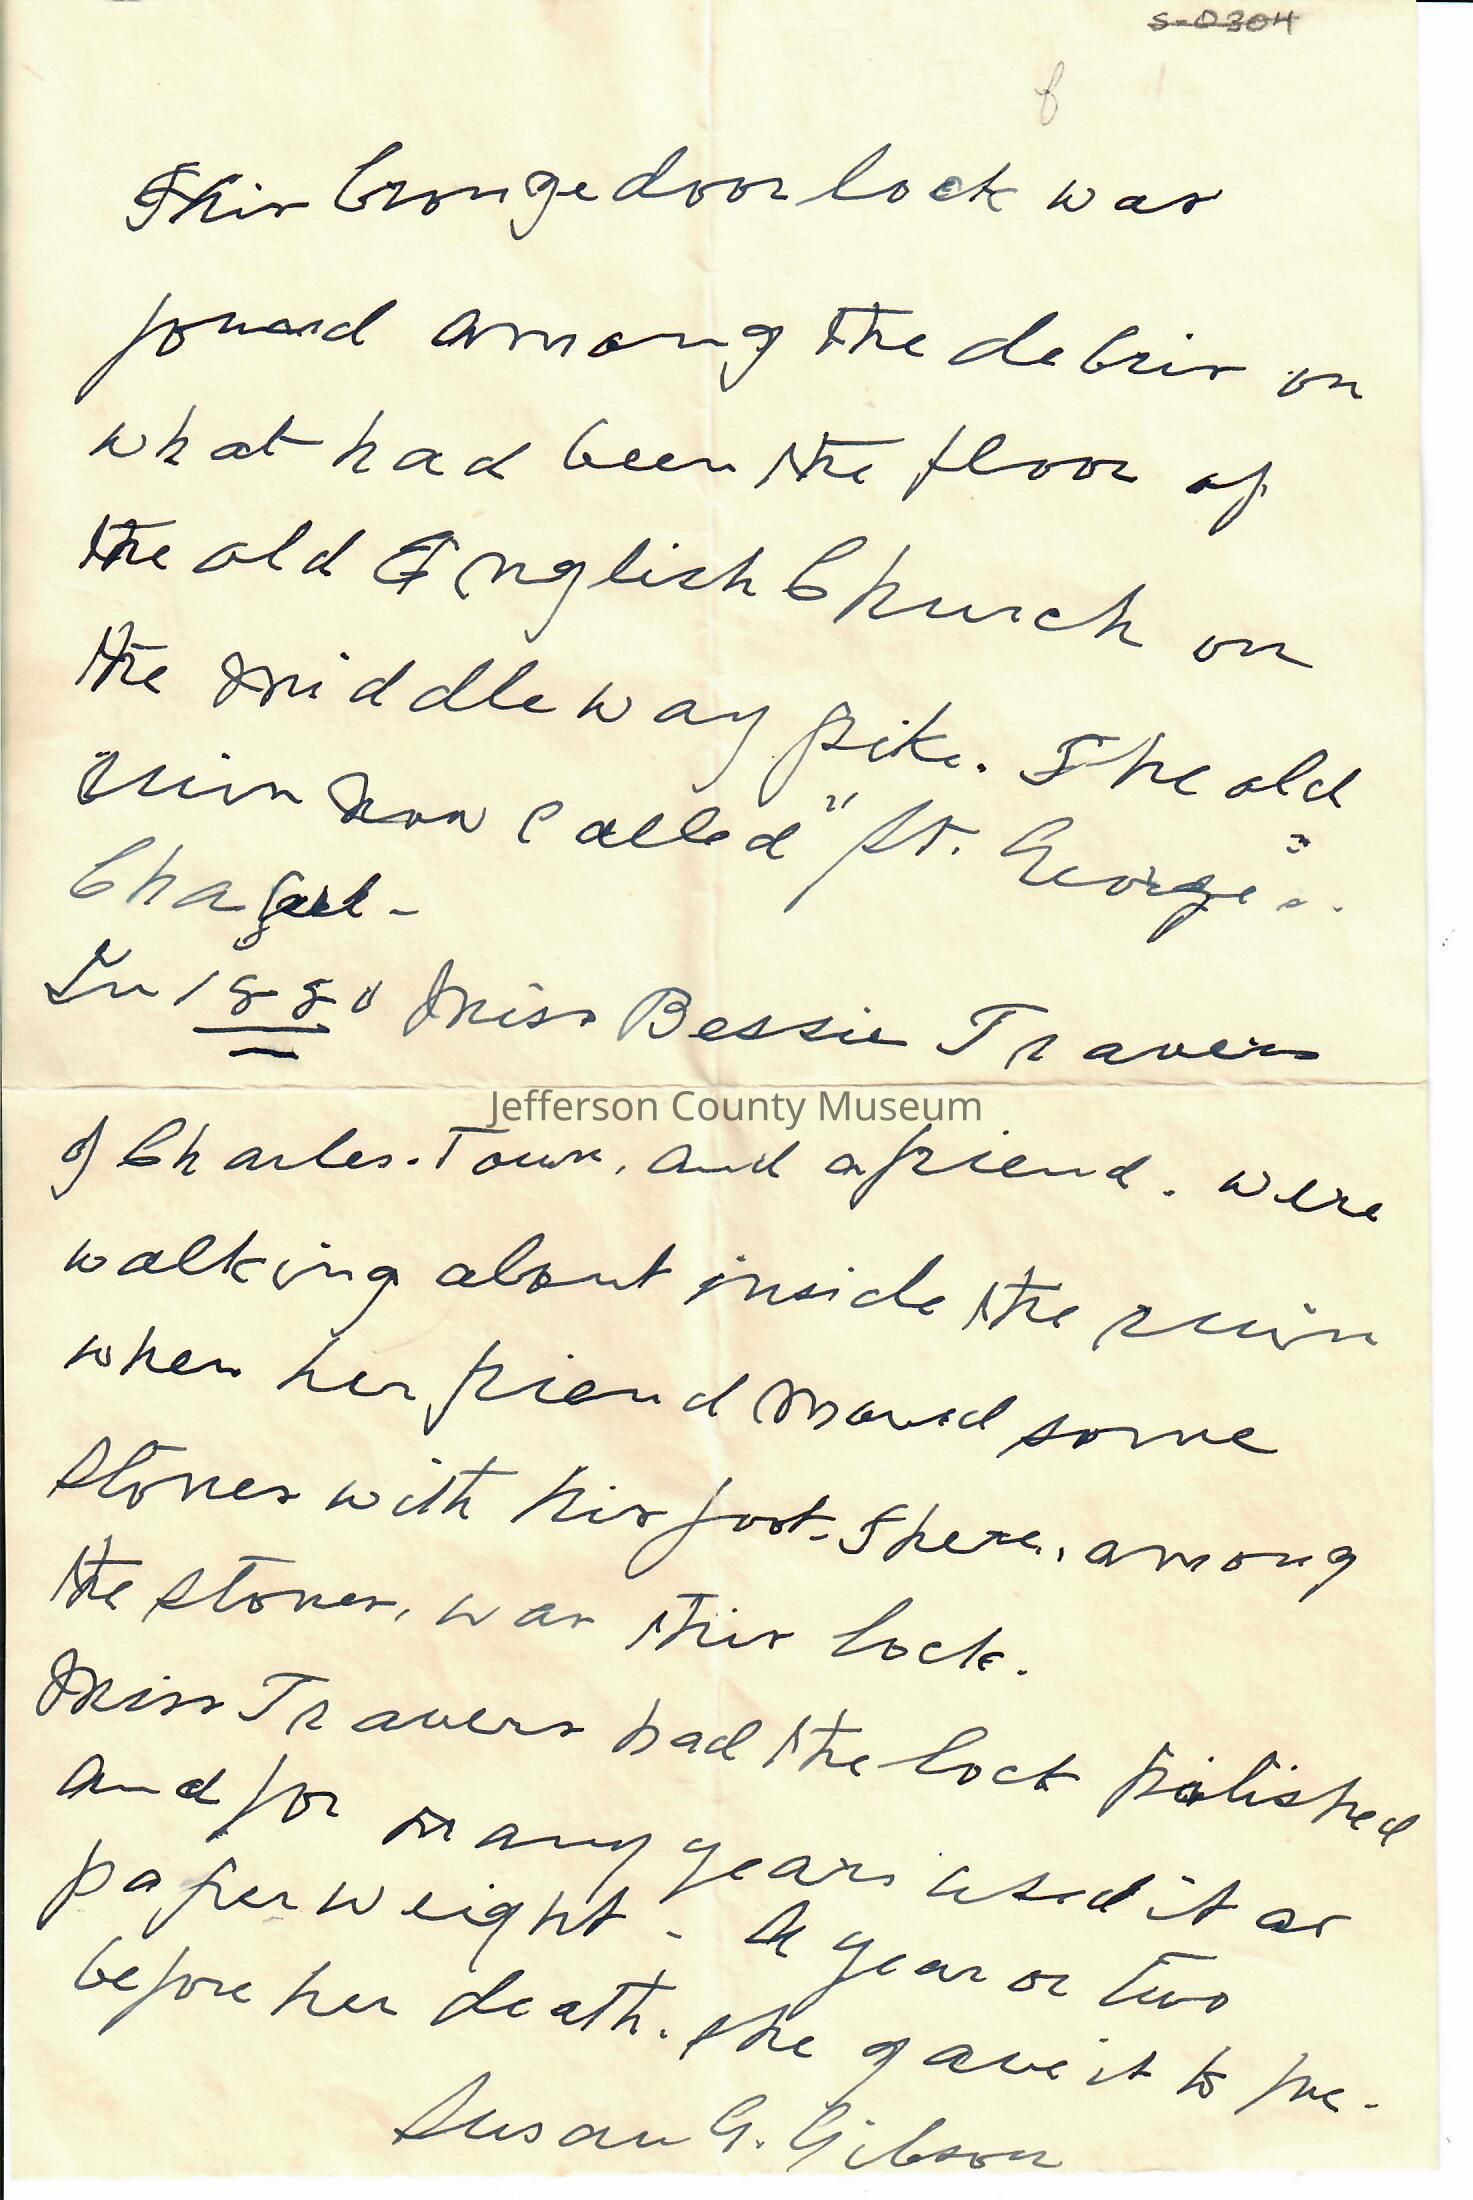 S-0304
This bronze door lock was
found among the debris on
what had been the floor of
the old English Church on
the Middleway pike. The old
ruin now called "St. George's"
Chapel-
In 1880 Miss Bessie Travers
of Charles-Town, and a friend, were
Jefferson County Museum
walking about inside the ruin
when her friend moved some
stones with his foot. There, among
the stones, was this lock.
Miss Travers had the lock polished
and for many years used it as
paperweight - A year or two
before her death, she gave it to me.
Susan G. Gibson